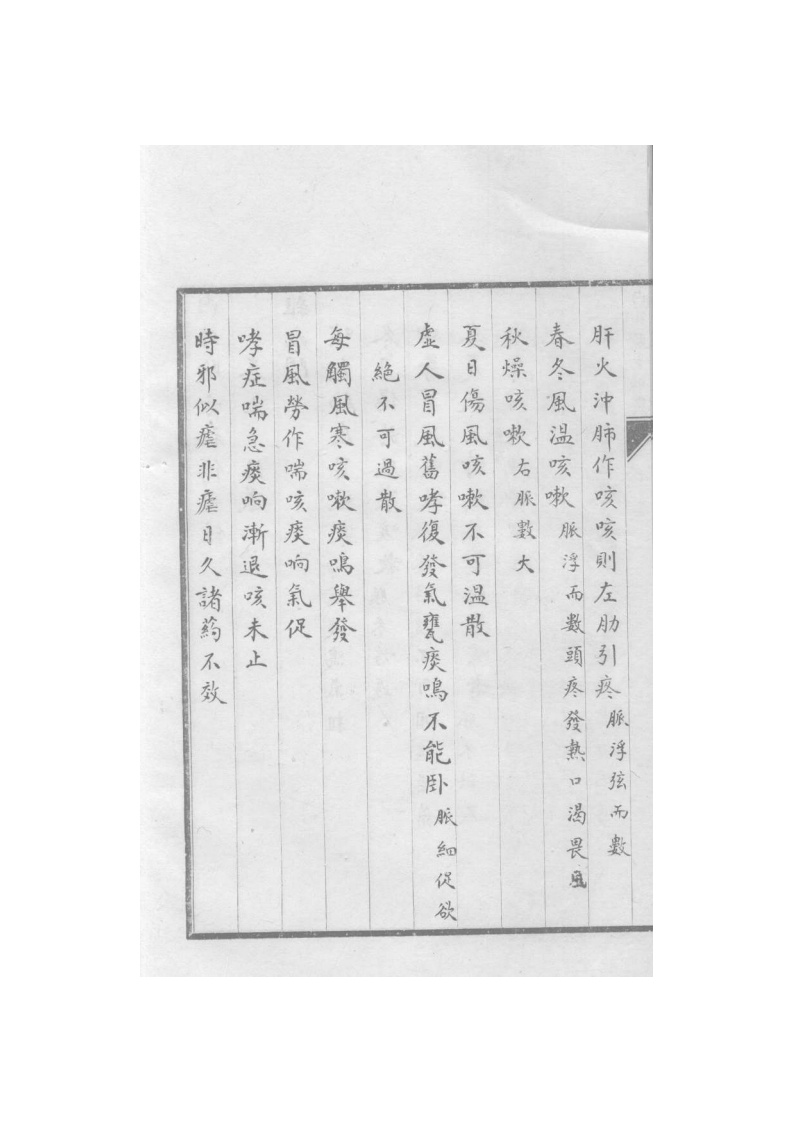 肝火沖肺作咳咳則左肋引疼脈浮弦而數
春冬風温咳嗽脈浮而數頭疼發熱口渴畏風
秋燥咳嗽右脈數大
夏日傷風咳嗽不可温散
虛人冒風舊哮復發氣甕痰鳴不能卧脈細促欲
絕不可過散
每觸風寒咳嗽痰鳴舉發
冒風勞作喘咳痰响氣促
哮症喘急痰响漸退咳未止
時邪似瘧非瘧日久諸药不效